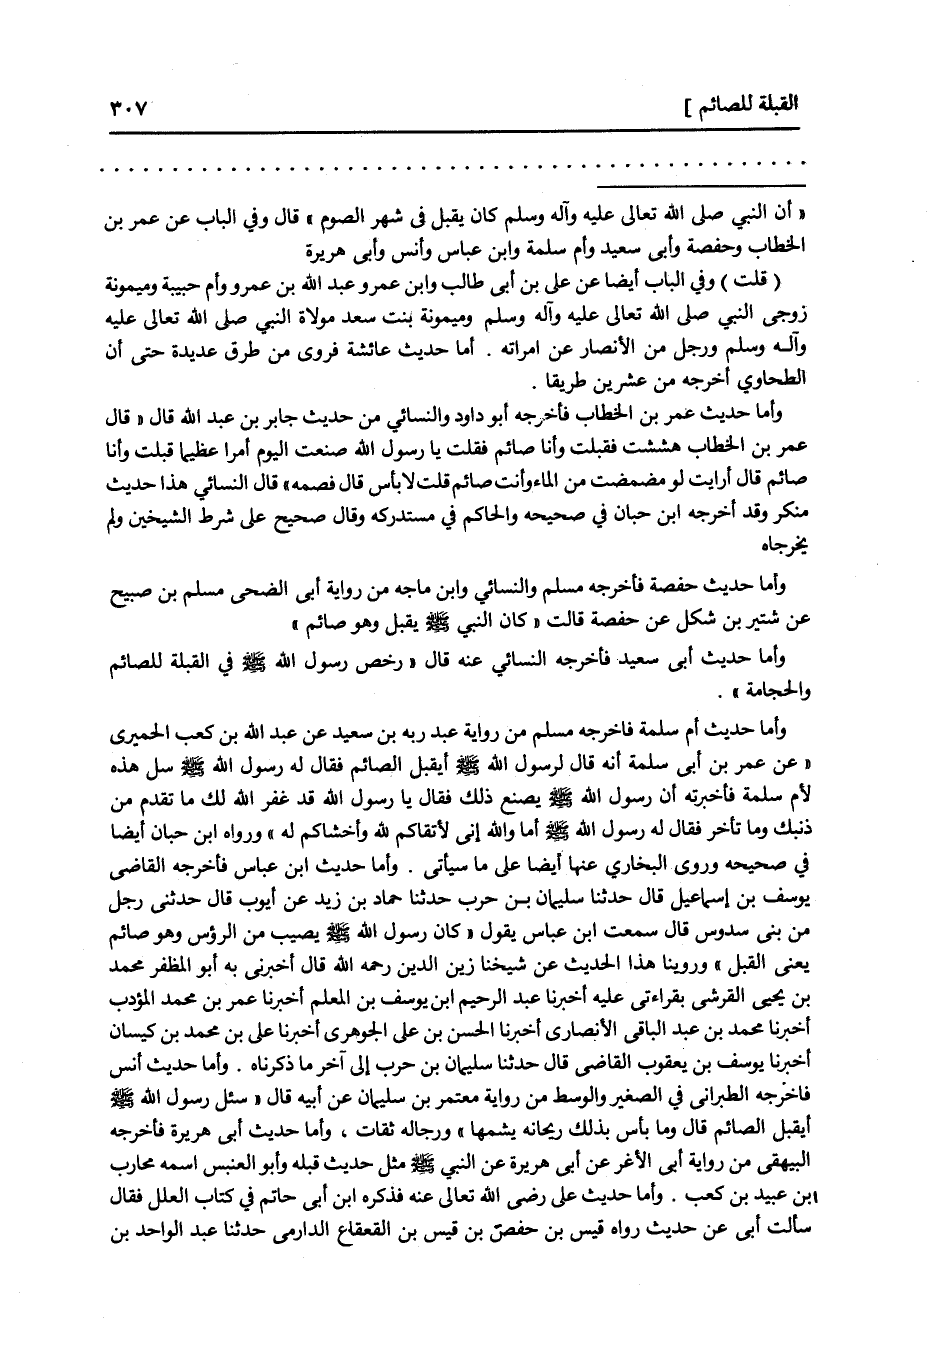 القبلة للصائم ] ٣٠٧
« أن النبي صلى الله تعالى عليه وآله وسلم كان يقبل فى شهر الصوم » قال وفي الباب عن عمر بن
الخطاب وحفصة وأبى سعيد وأم سلمة وابن عباس وأنس وأبى هريرة
( قلت ) وفي الباب أيضا عن على بن أبى طالب وابن عمرو عبد الله بن عمرو وأم حبيبة وميمونة
زوجى النبي صلى الله تعالى عليه وآله وسلم وميمونة بنت سعد مولاة النبي صلى الله تعالى عليه
وآله وسلم ورجل من الأنصار عن امراته . أما حديث عائشة فروى من طرق عديدة حتى أن
الطحاوي أخرجه من عشرين طريقا .
وأما حديث عمر بن الخطاب فأخرجه أبو داود والنسائي من حديث جابر بن عبد الله قال « قال
عمر بن الخطاب هششت فقبلت وأنا صائم فقلت يا رسول الله صنعت اليوم أمرا عظيما قبلت وأنا
صائم قال أرايت لو مضمضت من الماء وأنت صائم قلت لا بأس قال فصمه» قال النسائي هذا حديث
منكر وقد أخرجه ابن حبان في صحيحه والحاكم في مستدركه وقال صحيح على شرط الشيخين ولم
يخرجاه
وأما حديث حفصة فأخرجه مسلم والنسائي وابن ماجه من رواية أبى الضحى مسلم بن صبيح
عن شتير بن شكل عن حفصة قالت « كان النبي ﷺ يقبل وهو صائم »
وأما حديث أبى سعيد فأخرجه النسائي عنه قال « رخص رسول الله ﷺ في القبلة للصائم
والحجامة » .
وأما حديث أم سلمة فاخرجه مسلم من رواية عبد ربه بن سعيد عن عبد الله بن كعب الحميرى
« عن عمر بن أبى سلمة أنه قال لرسول الله ﷺ أيقبل الصائم فقال له رسول الله ﷺ سل هذه
لأم سلمة فأخبرته أن رسول الله ﷺ يصنع ذلك فقال يا رسول الله قد غفر الله لك ما تقدم من
ذنبك وما تأخر فقال له رسول الله ﷺ أما والله إنى لأتقاكم لله وأخشاكم له » ورواه ابن حبان أيضا
في صحيحه وروى البخاري عنها أيضا على ما سيأتى . وأما حديث ابن عباس فأخرجه القاضى
يوسف بن إسماعيل قال حدثنا سليمان بن حرب حدثنا حماد بن زيد عن أيوب قال حدثنى رجل
من بنى سدوس قال سمعت ابن عباس يقول « كان رسول الله ﷺ يصيب من الرؤس وهو صائم
يعنى القبل » وروينا هذا الحديث عن شيخنا زين الدين رحمه الله قال أخبرنى به أبو المظفر محمد
بن يحيى القرشى بقراءتى عليه أخبرنا عبد الرحيم ابن يوسف بن المعلم أخبرنا عمر بن محمد المؤدب
أخبرنا محمد بن عبد الباقى الأنصارى أخبرنا الحسن بن على الجوهرى أخبرنا على بن محمد بن كيسان
أخبرنا يوسف بن يعقوب القاضى قال حدثنا سليمان بن حرب إلى آخر ما ذكرناه . وأما حديث أنس
فاخرجه الطبرانى في الصغير والوسط من رواية معتمر بن سليمان عن أبيه قال « سئل رسول الله ﷺ
أيقبل الصائم قال وما بأس بذلك ريحانه يشمها » ورجاله ثقات ، وأما حديث أبى هريرة فأخرجه
البيهقى من رواية أبى الأغر عن أبى هريرة عن النبي ﷺ مثل حديث قبله وأبو العنبس اسمه محارب
ابن عبيد بن كعب . وأما حديث على رضى الله تعالى عنه فذكره ابن أبى حاتم في كتاب العلل فقال
سألت أبى عن حديث رواه قيس بن حفص بن قيس بن القعقاع الدارمى حدثنا عبد الواحد بن